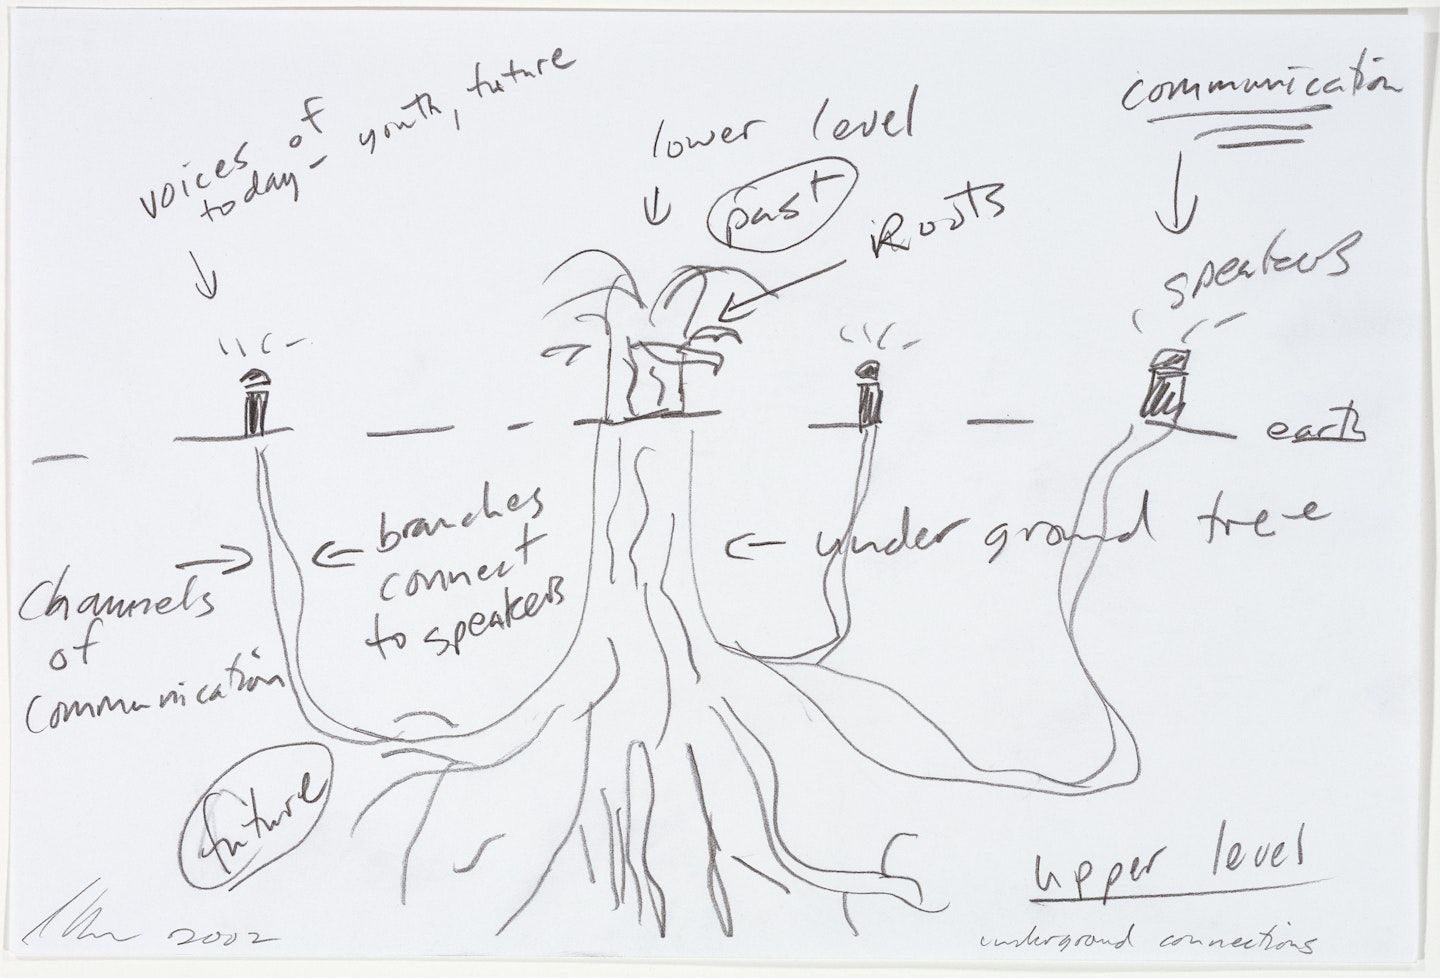 voices of
today - youth, future
lower level
past
Roots
communication
speakers
earth
branches
connect
to speakers
underground tree
Channels
of
communication
future
upper level
2002
underground connections